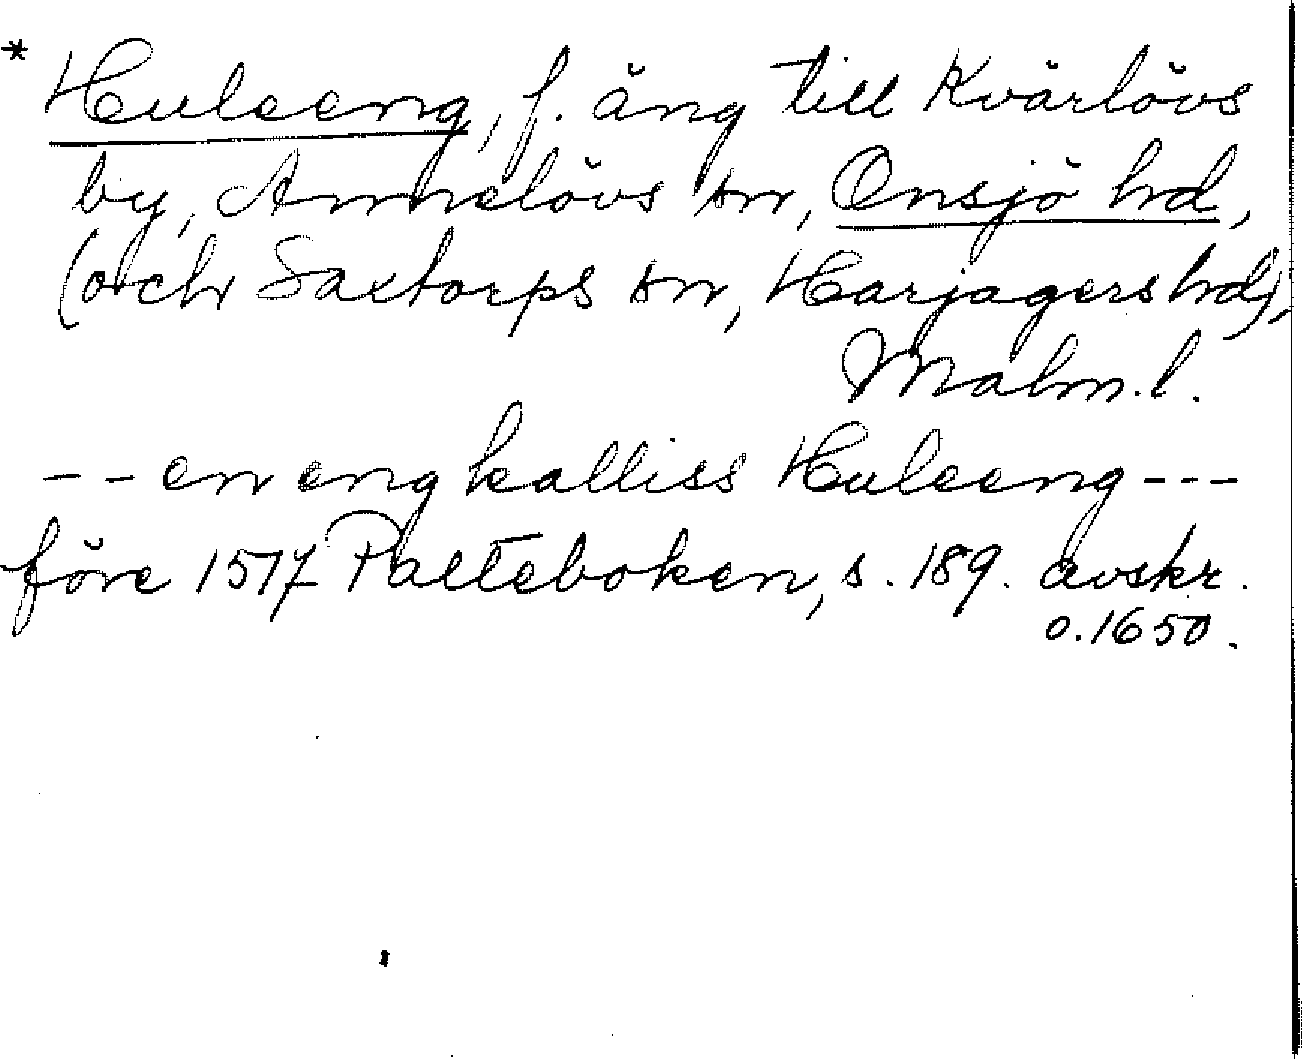 * Huleeng, f. äng till Kvärlövs
by, Annelövs sn, Onsjö hd,
(och Saxtorps sn, Harjagers hd),
Malm.l.
-- en eng kalliss Huleeng ---
före 1517 Palteboken, s. 189. avskr.
o. 1650.